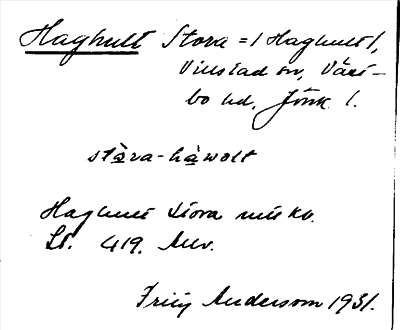 Haghult Stora = / Haghult /,
Villstad sn, Väst-
bo hd, Jönk. l.
stȧ̱ra-hȧ̱wolt
Haghult Stora mtl kv.
Lt. 419. Anv.
Fritz Anderson 1931.